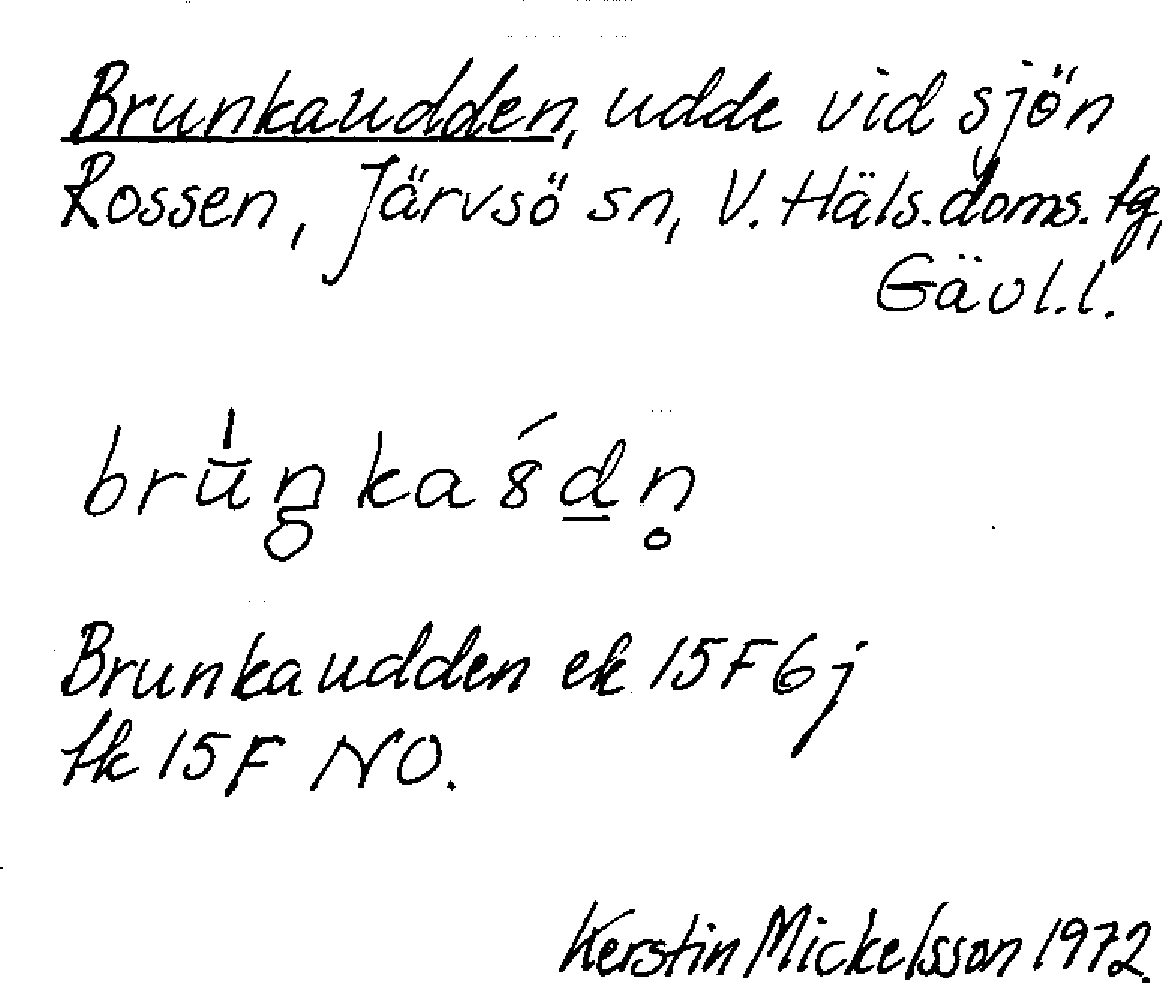 Brunkaudden, udde vid sjön
Rossen, Järvsö sn, V. Häls. doms. tg,
Gävl.l.
Brunkaudden ek 15F6j
tk 15F NO.
Kerstin Mickelsson 1972.